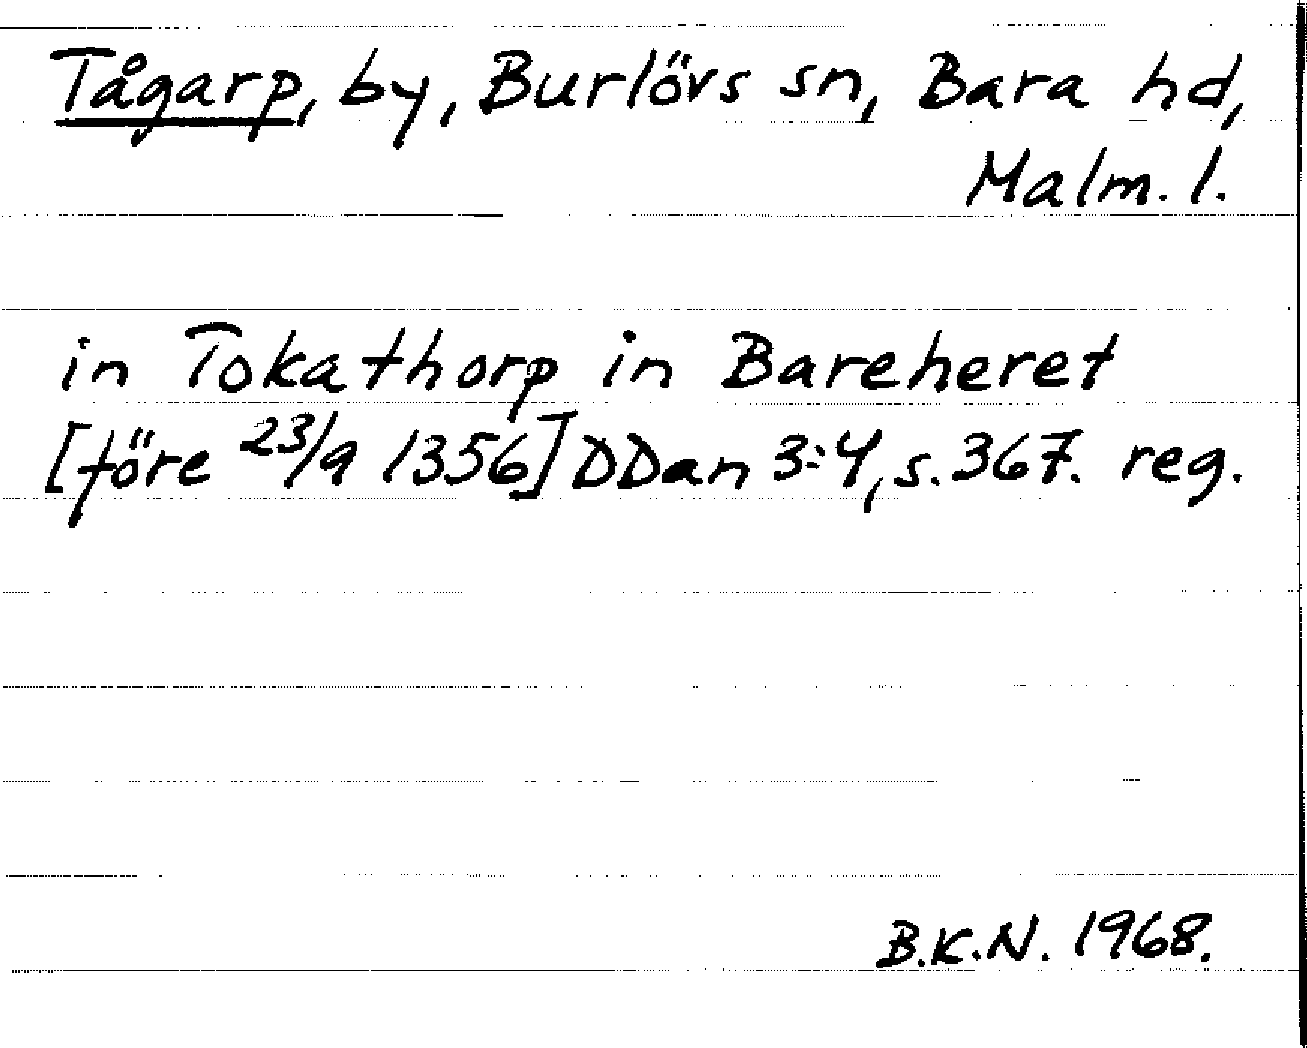 Tågarp, by, Burlövs sn, Bara hd,
Malm. l.
in Tokathorp in Bareheret
[före 23/9 1356] DDan 3:4, s. 367. reg.
B.K.N. 1968.